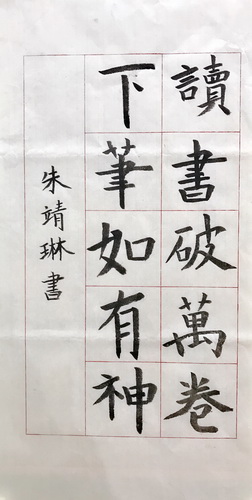 讀書破萬卷
下筆如有神
朱靖琳書